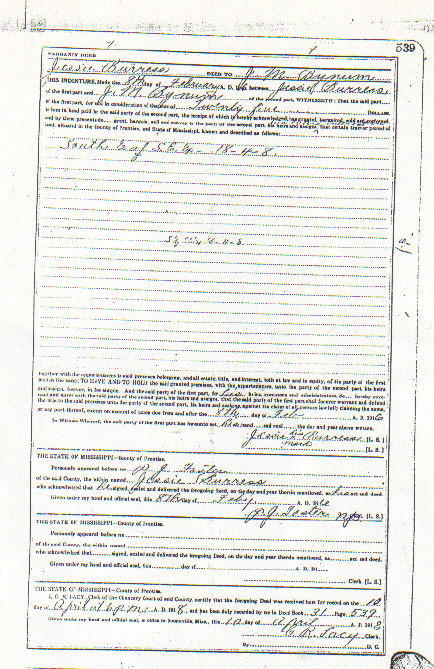 539
WARRANTY DEED
Jessie Burress DEED TO J. M. Bynum
THIS INDENTURE, Made the 8th day of February A. D. 191 between Jessie Burress
of the first part and J. M. Bynum of the second part, WITNESSETH: That the said part
of the first part, for and in consideration of the sum of Twenty five DOLLARS
to him in hand paid by the said party of the second part, the receipt of which is hereby acknowledged, has granted, bargained, sold and conveyed,
and by these presents do grant, bargain, sell and convey to the party of the second part, his heirs and assigns, that certain tract or parcel of
land, situated in the County of Prentiss, and State of Mississippi, known and described as follows:
South of S.E.4 18-4-8.
together with the appurtenances to said premises belonging, and all estate, title, and interest, both at law and in equity, of the party of the first
part in the same: TO HAVE AND TO HOLD the said granted premises, with the appurtenances, unto the party of the second part, his heirs
and assigns, forever, in fee simple. And the said party of the first part, for heirs, executors and administrators do hereby cove-
nant and agree with the said party of the second part, his heirs and assigns, that the said party of the first part shall forever warrant and defend
the title to the said premises unto the party of the second part, his heirs and assigns against the claim of all persons lawfully claiming the same,
or any part thereof, except on account of taxes due from and after the 8th day of Feb A. D. 1916
In Witness Whereof, the said party of the first part has hereunto set his hand and the day and year above written.
Jessie Burress [L. S.]
mark [L. S.]
THE STATE OF MISSISSIPPI—County of Prentiss.
Personally appeared before me
of the said County, the within named Jessie Burress
who acknowledged that he signed, sealed and delivered the foregoing Deed, on the day and year therein mentioned, as his act and deed.
Given under my hand and official seal, this 8th day of Feby A. D. 1916
[L. S.]
THE STATE OF MISSISSIPPI—County of Prentiss.
Personally appeared before me
of the said County, the within named
who acknowledged that signed, sealed and delivered the foregoing Deed, on the day and year therein mentioned, as act and deed.
Given under my hand and official seal, this day of A. D. 191
Clerk [L. S.]
THE STATE OF MISSISSIPPI—County of Prentiss.
LACY, Clerk of the Chancery Court of said County, certify that the foregoing Deed was received for record on the 12
day of April at 6 P.M. A. D. 1918, and has been duly recorded by me in Deed Book 31 Page 539
Given under my hand and official seal, at office in Booneville, Miss., this 12 day of April 1918
Lacy, Clerk.
By D. C.